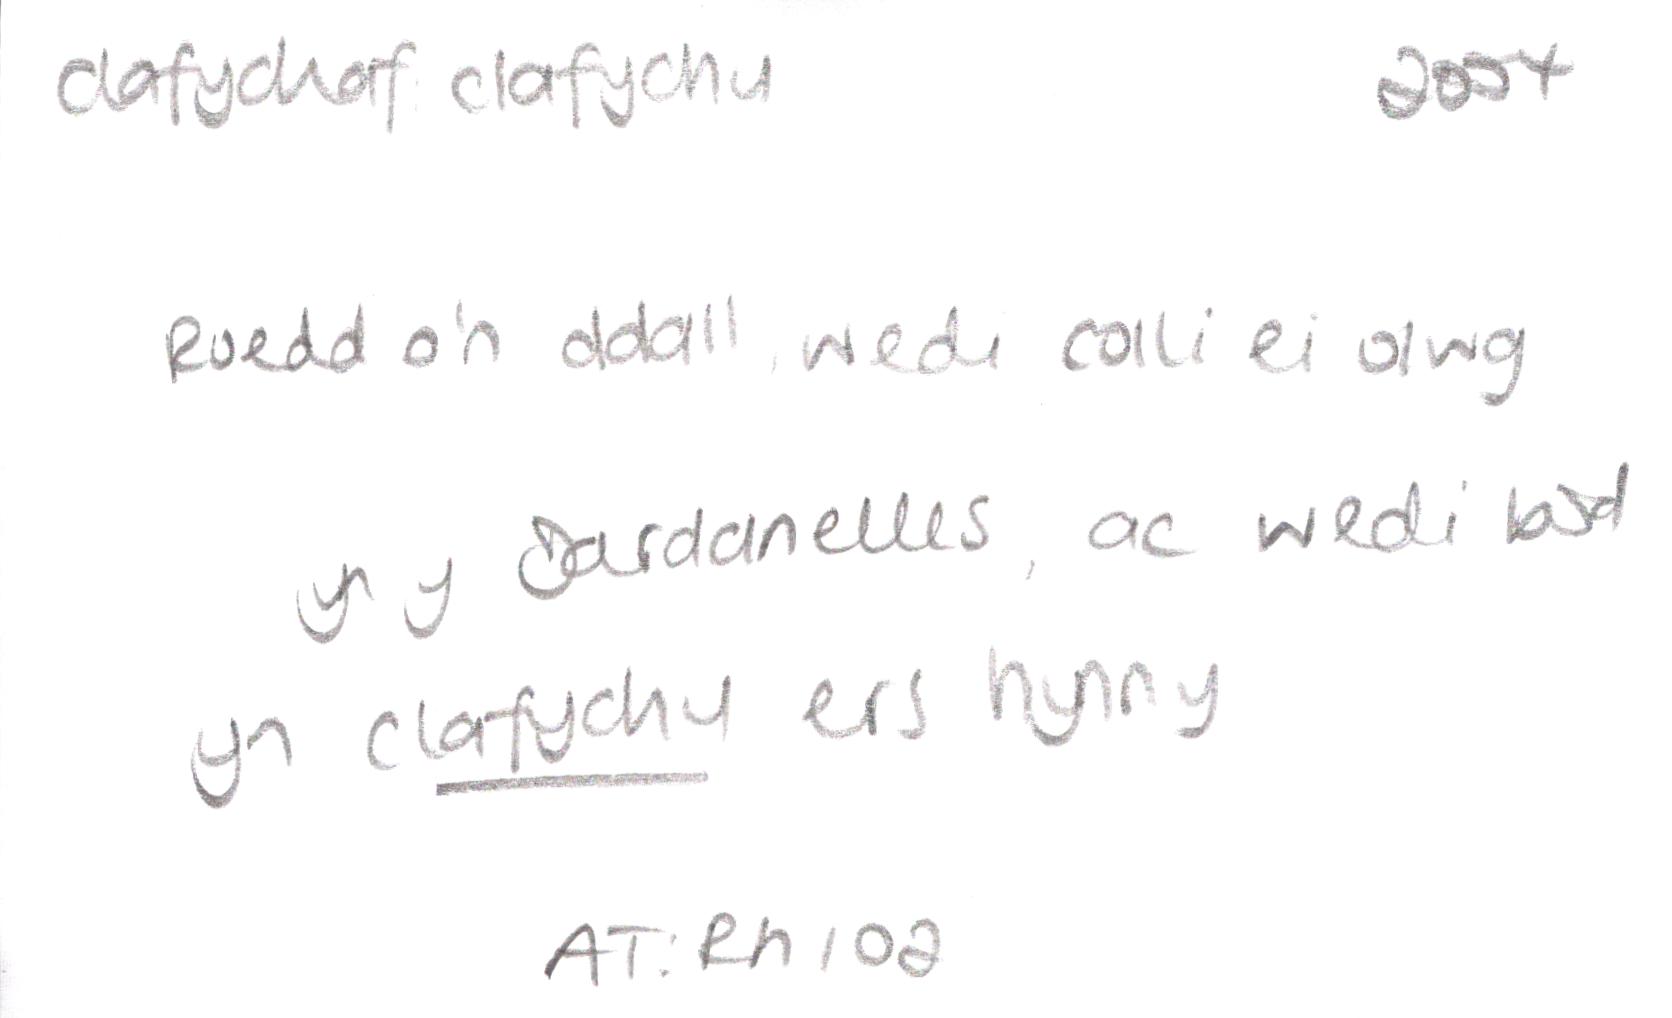 clafychaf: clafychu 2004
Roedd o'n ddall, wedi colli ei olwg
yn y Dardanelles, ac wedi bod
yn clafychu ers hynny
AT: Rh 102